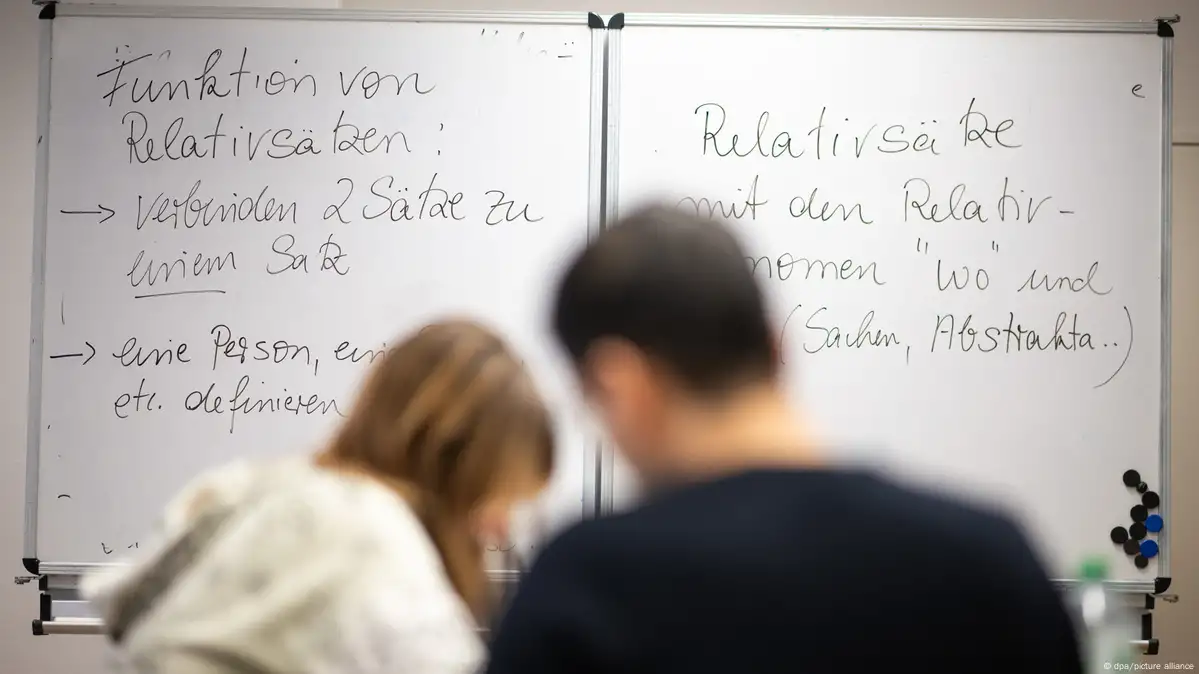 Funktion von
Relativsätzen:
→ verbinden 2 Sätze zu
einem Satz
→ eine Person,
etc. definieren
Relativsätze
mit den Relativ-
nomen "wo" und
(Sachen, Abstrakta..)
e
© dpa/picture alliance